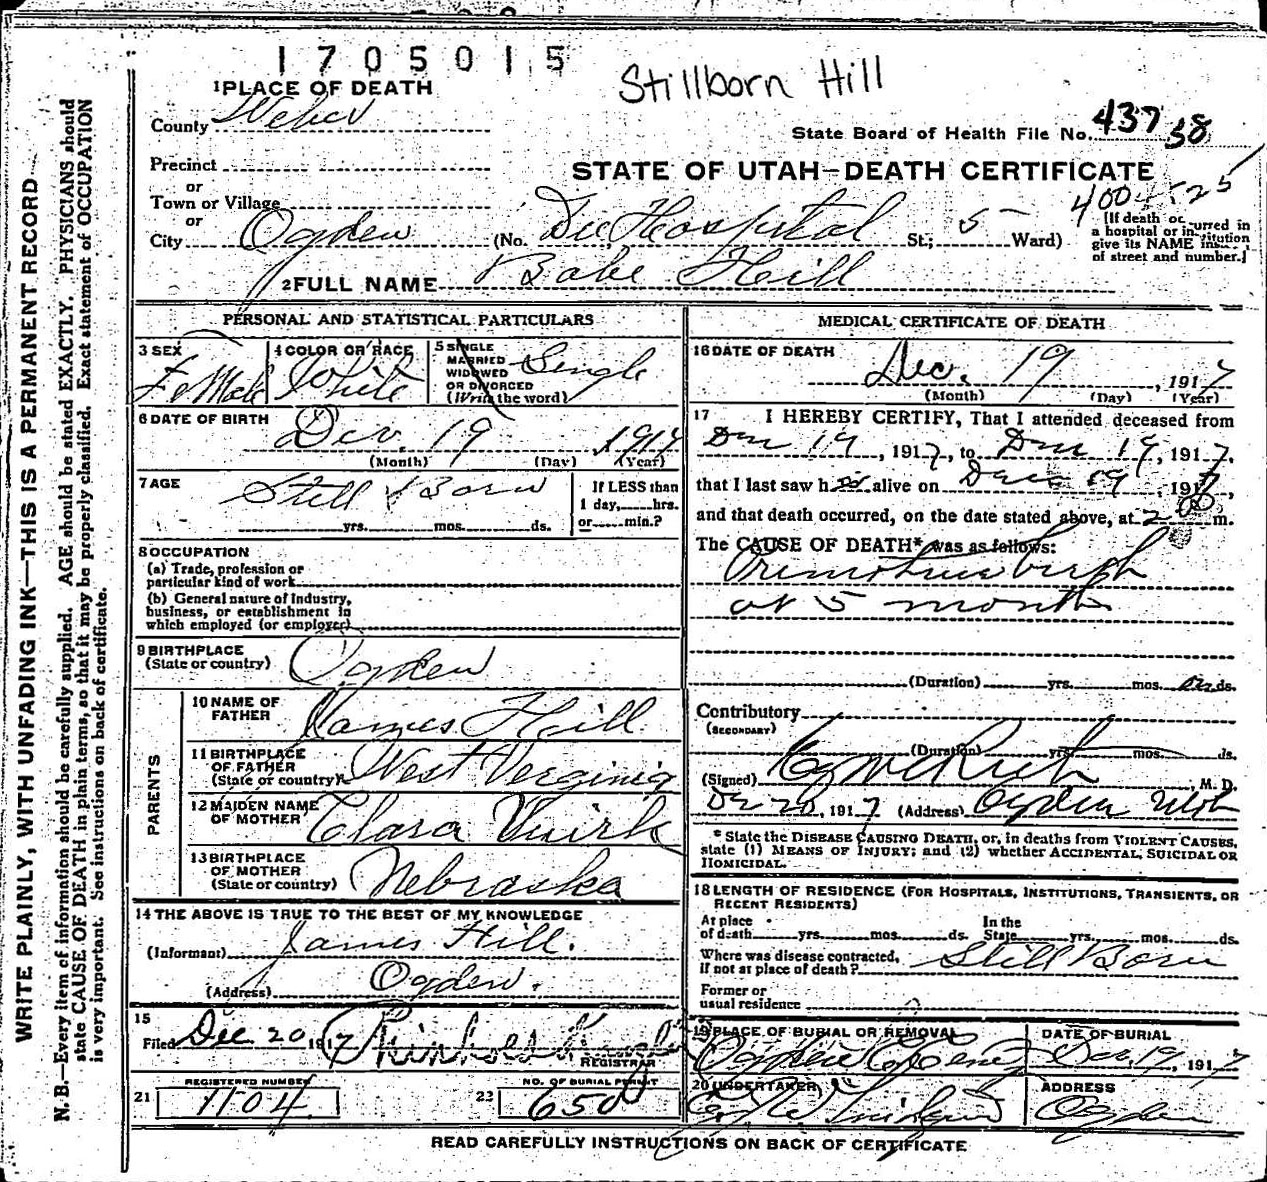 1705015
Stillborn Hill
1 PLACE OF DEATH
County Weber
State Board of Health File No. 437 38
Precinct
STATE OF UTAH—DEATH CERTIFICATE
or
Town or Village
or
City Ogden (No. Dee Hospital St; 5 Ward)
[If death occurred in
a hospital or institution
give its NAME instead
of street and number.]
2 FULL NAME Babe Hill
PERSONAL AND STATISTICAL PARTICULARS
3 SEX FeMale
4 COLOR OR RACE White
5 SINGLE
MARRIED
WIDOWED
OR DIVORCED
(Write the word)
Single
6 DATE OF BIRTH
Dec. 19 1917
(Month) (Day) (Year)
7 AGE Still Born
yrs. mos. ds.
If LESS than
1 day, hrs.
or min.?
8 OCCUPATION
(a) Trade, profession or
particular kind of work
(b) General nature of industry,
business, or establishment in
which employed (or employer)
9 BIRTHPLACE
(State or country) Ogden
PARENTS
10 NAME OF
FATHER James Hill
11 BIRTHPLACE
OF FATHER
(State or country) West Verginia
12 MAIDEN NAME
OF MOTHER Clara
13 BIRTHPLACE
OF MOTHER
(State or country) Nebraska
14 THE ABOVE IS TRUE TO THE BEST OF MY KNOWLEDGE
(Informant) James Hill.
(Address) Ogden.
15
Filed Dec 20 1917
REGISTRAR
REGISTERED NUMBER
21 1104
NO. OF BURIAL PERMIT
22 650
MEDICAL CERTIFICATE OF DEATH
16 DATE OF DEATH
Dec. 19, 1917
(Month) (Day) (Year)
17 I HEREBY CERTIFY, That I attended deceased from
Dec 19, 1917, to Dec 19, 1917,
that I last saw h alive on Dec 19, 1917,
and that death occurred, on the date stated above, at 2 m.
The CAUSE OF DEATH* was as follows:
at 5 months
(Duration) yrs. mos. ds.
Contributory
(SECONDARY)
(Duration) yrs. mos. ds.
(Signed) Rich, M. D.
Dec 20, 1917 (Address) Ogden Utah
* State the DISEASE CAUSING DEATH, or, in deaths from VIOLENT CAUSES,
state (1) MEANS OF INJURY; and (2) whether ACCIDENTAL, SUICIDAL OR
HOMICIDAL.
18 LENGTH OF RESIDENCE (FOR HOSPITALS, INSTITUTIONS, TRANSIENTS, OR
RECENT RESIDENTS)
At place
of death yrs. mos. ds.
In the
State yrs. mos. ds.
Where was disease contracted,
if not at place of death? Still Born
Former or
usual residence
19 PLACE OF BURIAL OR REMOVAL
Ogden
DATE OF BURIAL
Dec 19, 1917
20 UNDERTAKER
ADDRESS
Ogden
READ CAREFULLY INSTRUCTIONS ON BACK OF CERTIFICATE
WRITE PLAINLY, WITH UNFADING INK—THIS IS A PERMANENT RECORD
N. B.—Every item of information should be carefully supplied. AGE should be stated EXACTLY. PHYSICIANS should
state CAUSE OF DEATH in plain terms, so that it may be properly classified. Exact statement of OCCUPATION
is very important. See instructions on back of certificate.